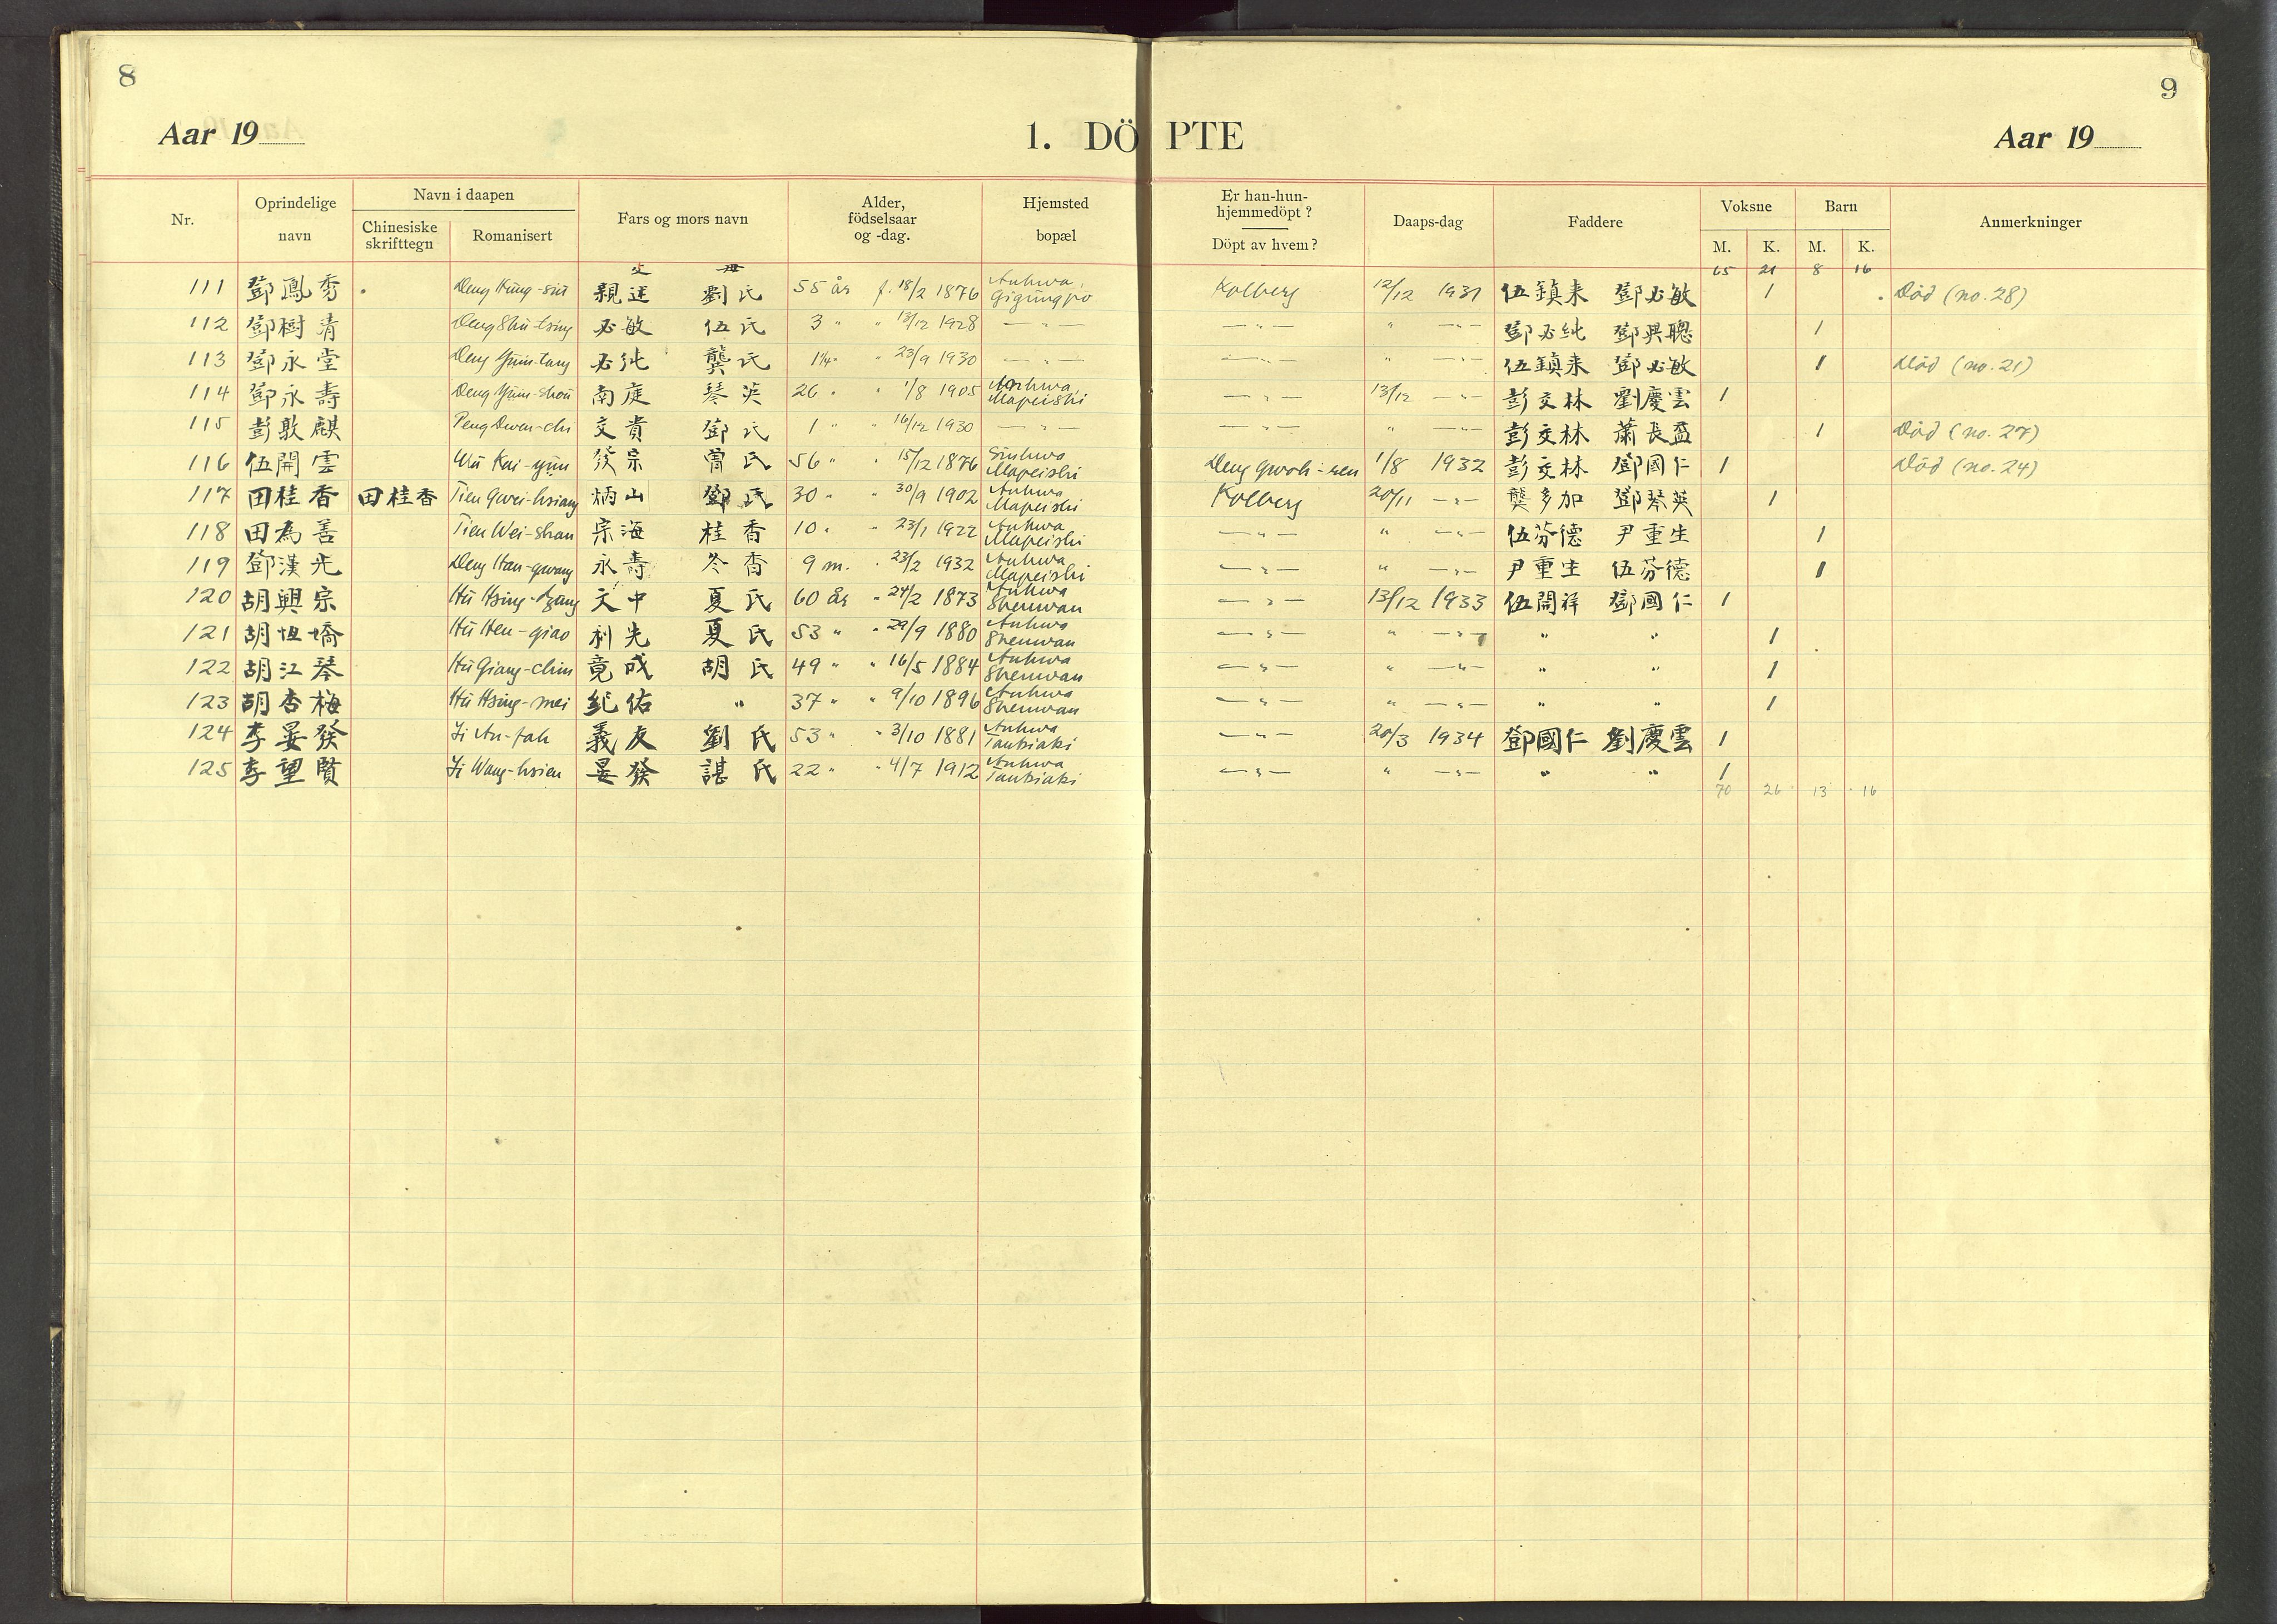 8
9
Aar 19
1. DÖPTE
Aar 19
Nr.
Oprindelige navn
Navn i daapen
Chinesiske skrifttegn
Romanisert
Fars og mors navn
Alder, födselsaar og -dag.
Hjemsted bopæl
Er han-hun-hjemmedöpt ?
Döpt av hvem ?
Daaps-dag
Faddere
Voksne
M. K.
Barn
M. K.
Anmerkninger
父 母
65 21 8 16
111 鄧鳳秀 劉氏 55 år f. 18/2 1876 Anhwa, Gigungpo Kolberg 12/12 1931 伍鎮來 鄧必敏 1 Död (no. 28)
112 鄧樹清 Deng Shu-tsing 必敏 伍氏 3 " " 13/12 1928 — " — — " — " — " — 鄧必純 鄧興聰 1
113 鄧永堂 必純 龔氏 1¼ " " 23/9 1930 — " — — " — " — " — 伍鎮來 鄧必敏 1 Död (no. 21)
114 鄧永壽 南庭 琴英 26 " " 1/8 1905 Anhwa, Mapeishi — " — 13/12 — " — 彭文林 劉慶雲 1
115 彭敦麒 Peng Dwen-chi 文貴 鄧氏 1 " " 16/12 1930 — " — — " — " — " — 彭文林 蕭長盈 1 Död (no. 27)
116 伍開雲 Wu Kai-yün 發宗 曾氏 56 " " 15/12 1876 Sinhwa Mapeishi Deng Gwoh-ren 1/8 1932 彭文林 鄧國仁 1 Död (no. 24)
117 田桂香 田桂香 Tien Gwei-hsiang 炳山 鄧氏 30 " " 30/9 1902 Anhwa Mapeishi Kolberg 20/11 — " — 龔多加 鄧琴英 1
118 田為善 Tien Wei-shan 宗海 桂香 10 " " 23/1 1922 Anhwa Mapeishi — " — " — " — 伍芬德 尹重生 1
119 鄧漢光 Deng Han-gwang 永壽 冬香 9 m. " 23/2 1932 Anhwa Mapeishi — " — " — " — 尹重生 伍芬德 1
120 胡興宗 文中 夏氏 60 år " 24/2 1873 Anhwa Shenwan — " — 13/12 1933 伍開祥 鄧國仁 1
121 胡恒嬌 Hu Hen-giao 利先 夏氏 53 " " 29/9 1880 Anhwa Shenwan — " — " — " — " " 1
122 胡江琴 Hu Giang-chin 竟成 胡氏 49 " " 16/5 1884 Anhwa Shenwan — " — " — " — " " 1
123 胡杏梅 Hu Hsing-mei 紀佑 " 37 " " 9/10 1896 Anhwa Shenwan — " — " — " — " " 1
124 李晏發 Li An-fah 義友 劉氏 53 " " 3/10 1881 Anhwa — " — 20/3 1934 鄧國仁 劉慶雲 1
125 李望賢 Li Wang-hsien 晏發 諶氏 22 " " 4/7 1912 Anhwa — " — " — " — " " 1
70 26 13 16